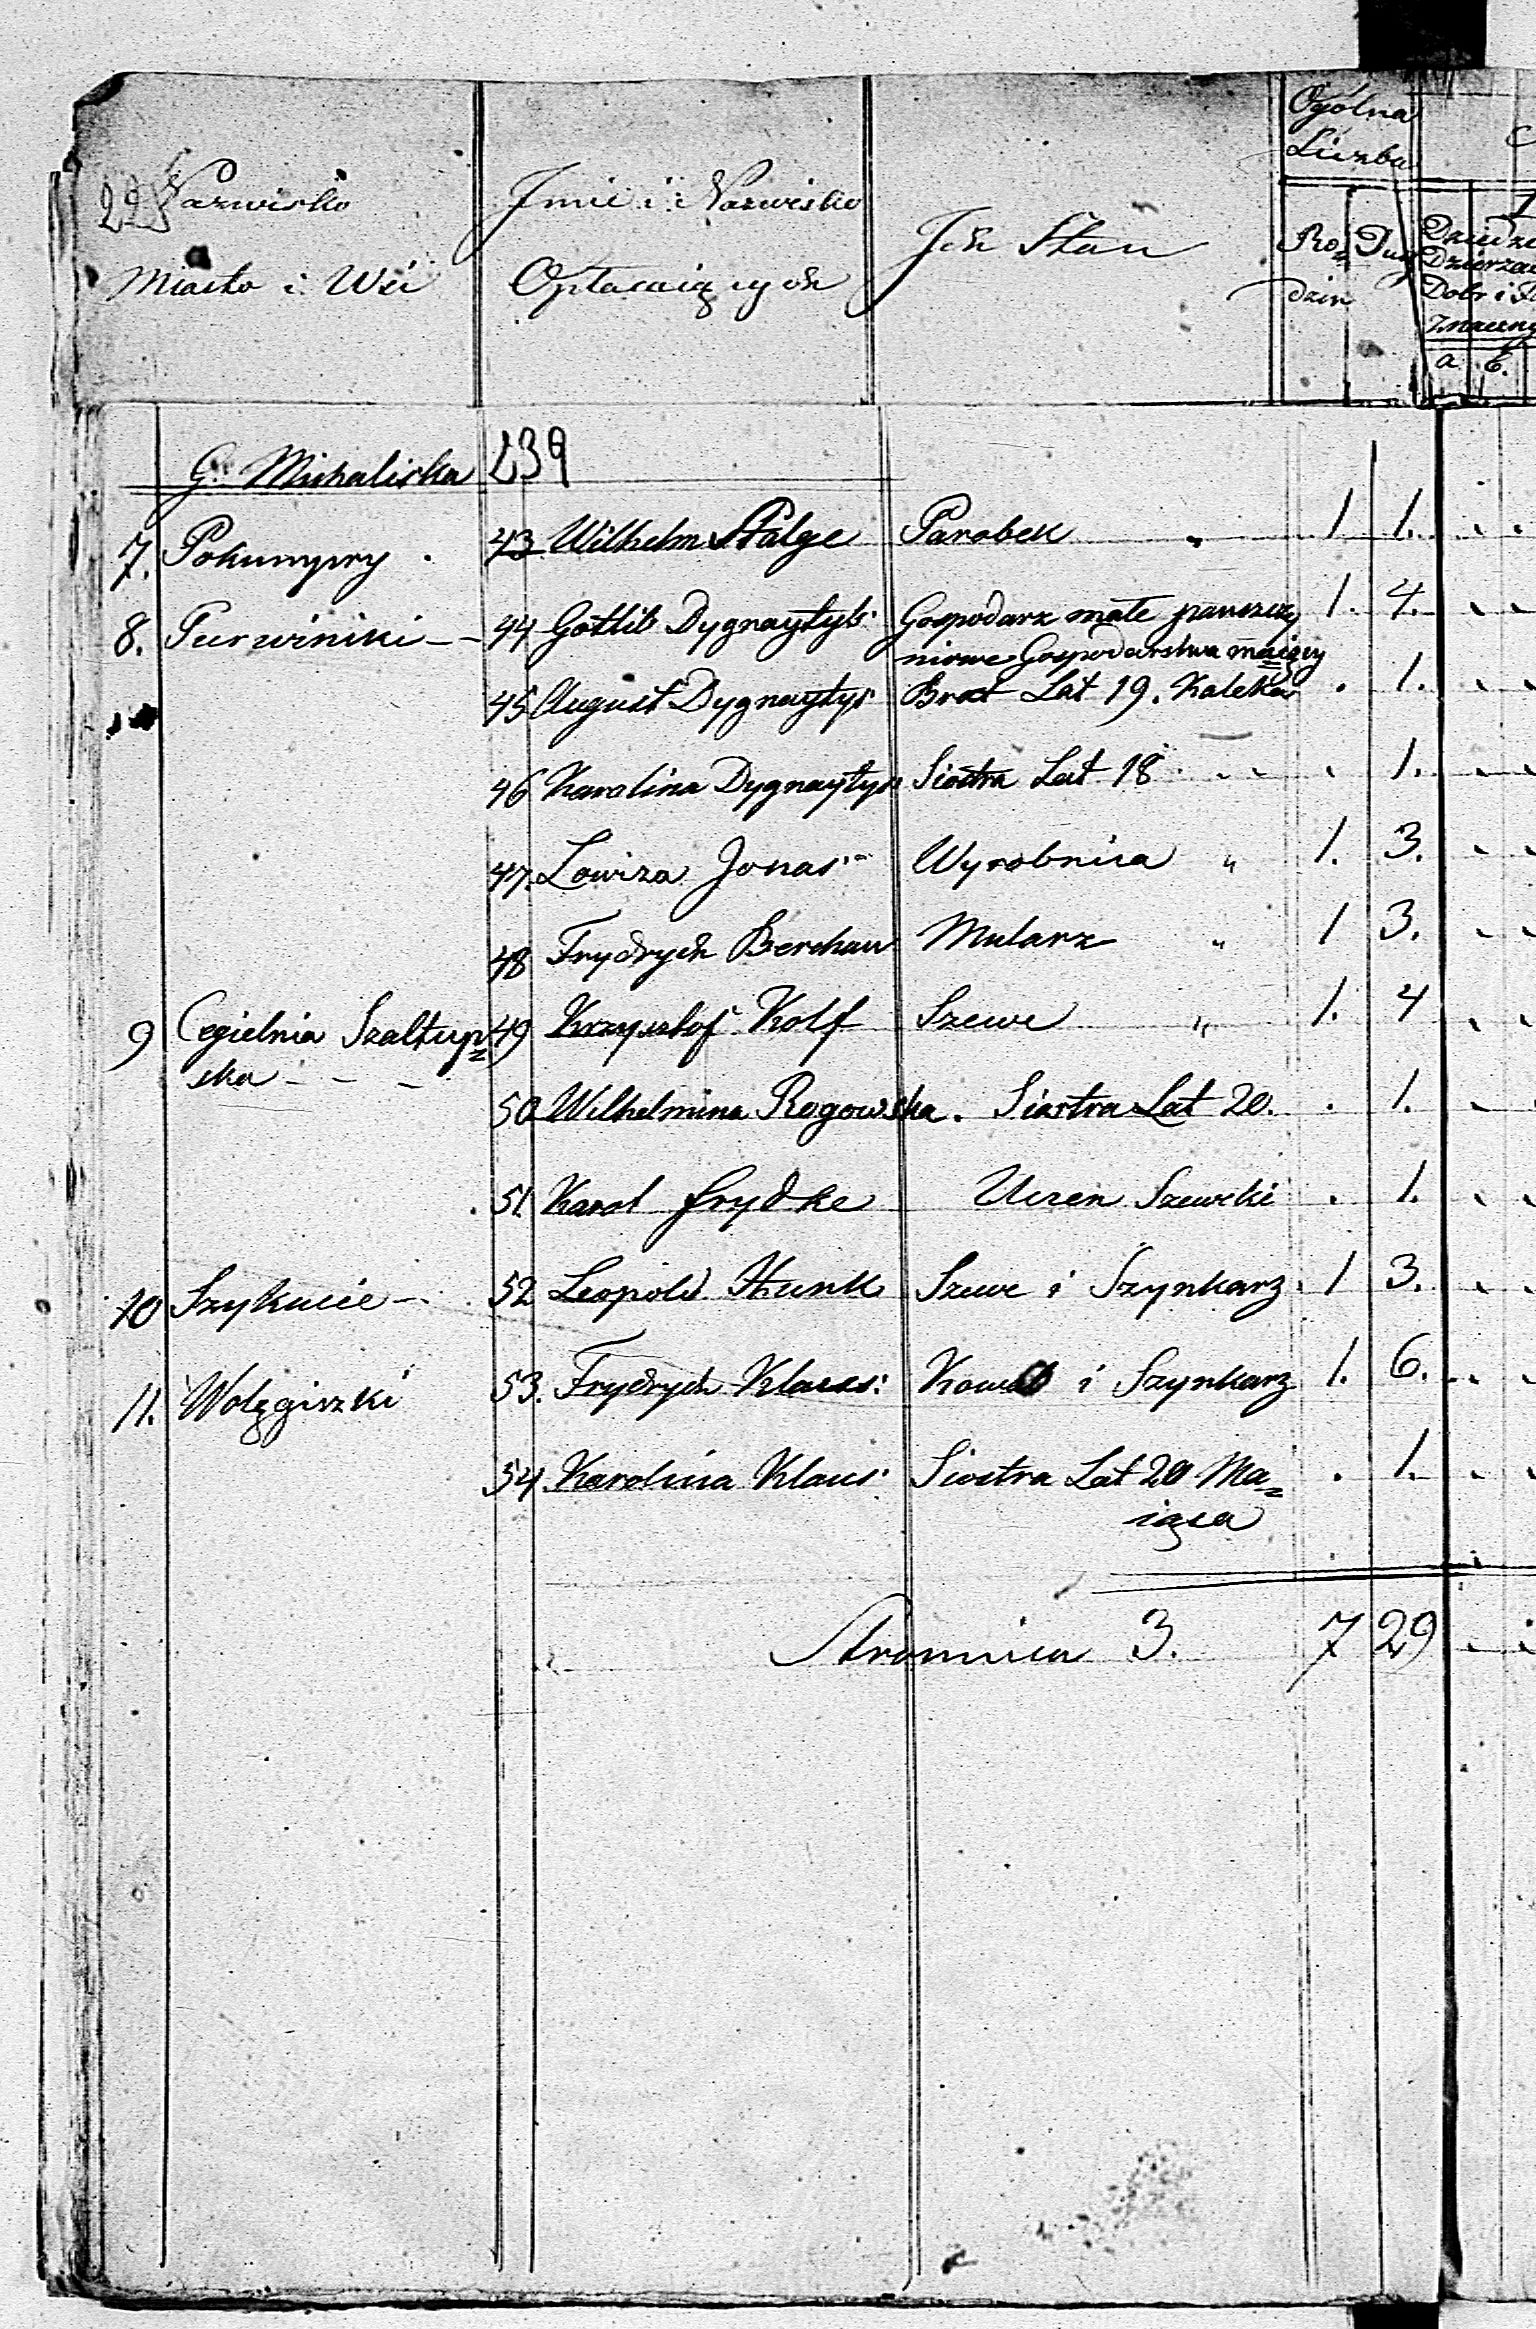 Nazwisko
Miasto i Wsi
Jmie i Nazwisko
Opłacaiących
Jch Stan
Ogólna
Liczba
Ro=
dzin
Dusz
Dobr i
Znaczny
a. b.
G. Michaliska 239
7. Pokumpry . 43. Wilhelm Stalge Parobek " 1 1.
8. Purwiniki -- 44 Gottlib Dygnaytys Gospodarz małe panszczy 1. 4.
niowe Gospodarstwa maiący
45 August Dygnaytys Brat Lat 19. Kaleka . 1.
46 Karolina Dygnaytys Siostra Lat 18 . 1.
47. Lowiza Jonas Wyrobnica " 1. 3.
48 Frydrych Berchau Mularz " 1 3.
9 Cegielnia Szaltup= 49 Krzysztof Kolf Szewc " 1. 4
ska - - -
50 Wilhelmina Rogowska. Siostra Lat 20. . 1.
51. Karol Frydke Uczen Szewcki . 1.
10 Szykucie - 52 Leopold Hunk Szewc i Szynkarz. 1 3.
11. Wolęgiszki 53. Frydrych Klaus: Kowal i Szynkarz 1. 6.
54. Karolina Klaus: Siostra Lat 20 Ma= . 1.
iąca
Stronnica 3. 7 29